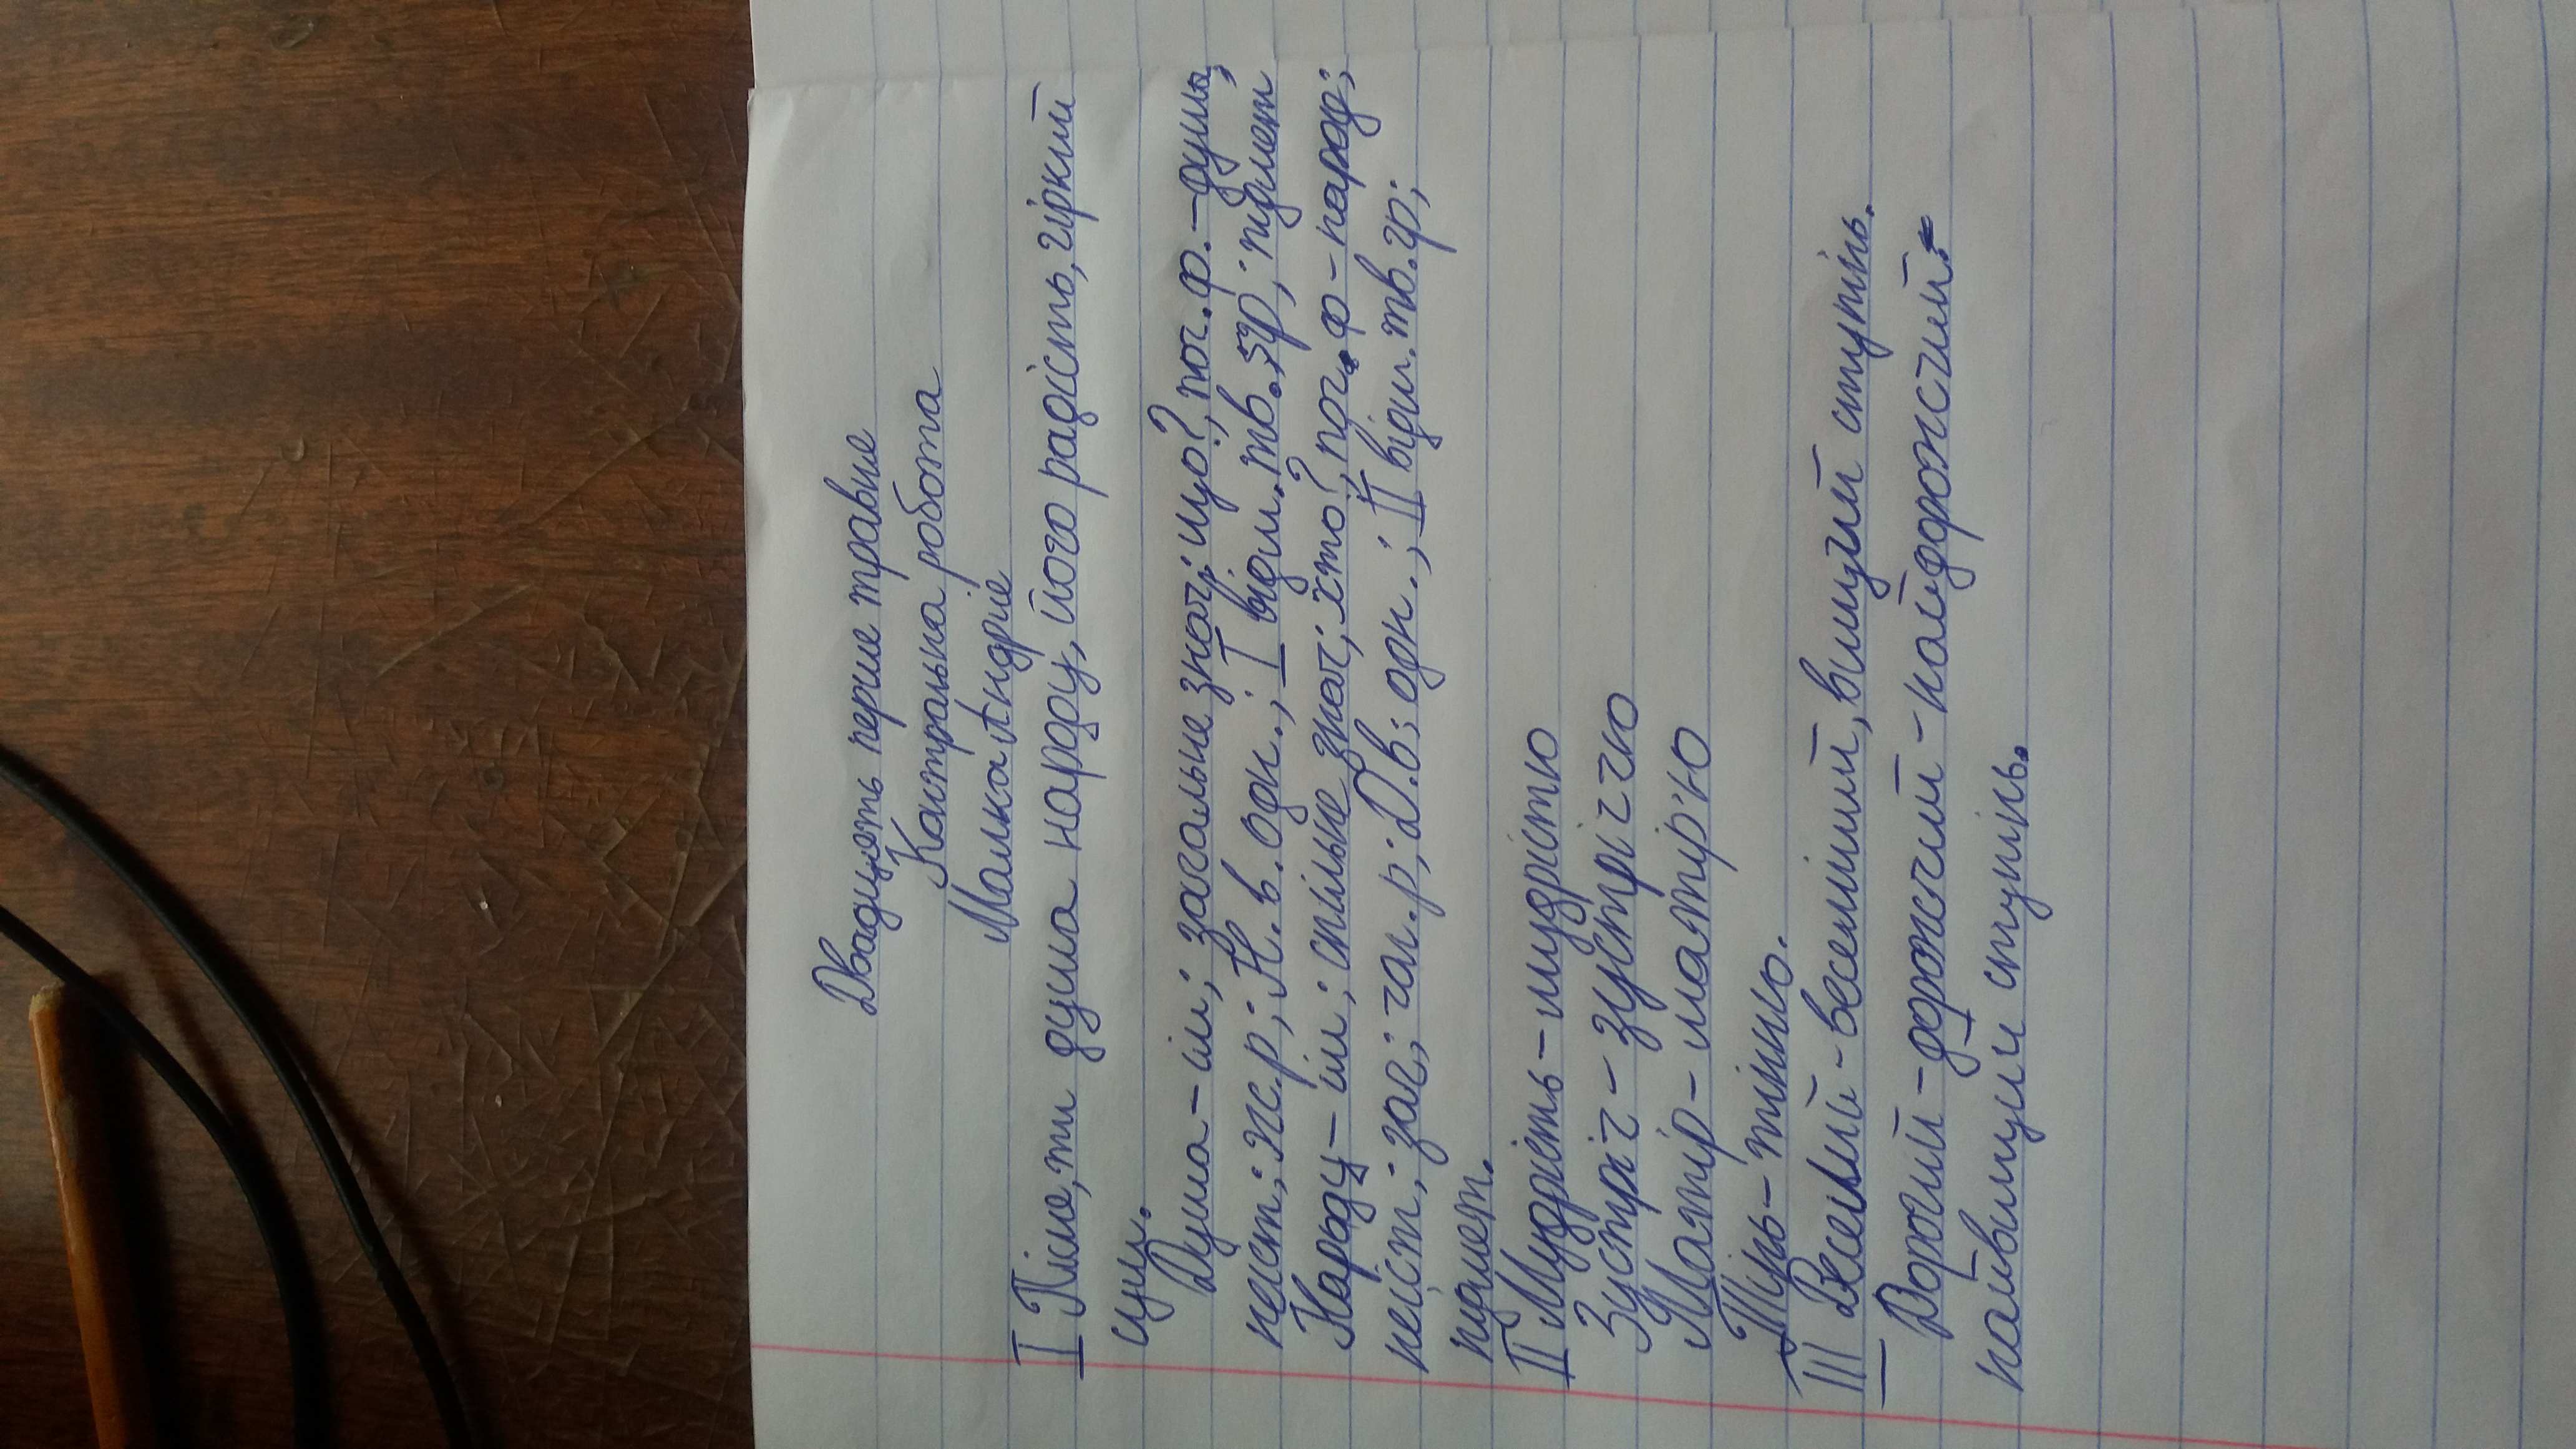 Двадцять перше травне
Контрольна робота
Малка Андріє
I Пісне, ти душа народу, його радість, гіркий
сум.
Душа - ім; загальне знач; що?, поч.ф. - душа,
неіст; ж.р; Н.в. одн.; I відм. тв. гр; підмет
Народу - ім; спільне знач; хто?, поч.ф - народ;
неіст; заг; чол.р; Д.в; одн.; II відм. тв. гр;
підмет.
II Мудрість - мудрістю
Зустріч - зустріччю
Матір - матір'ю
Тінь - тінню.
III Веселий - веселіший, вищий ступінь.
Дорогий - дорожчий - найдорожчий.
найвищий ступінь.